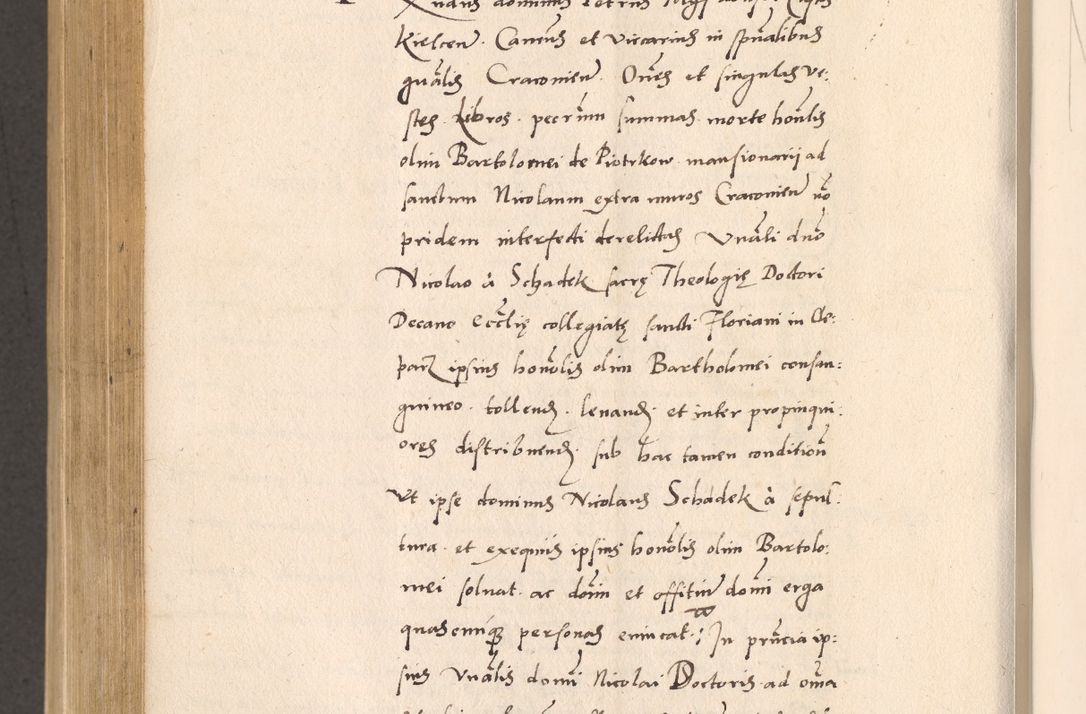 Kielcen̄. Canon̄s et vicarius in sp̄ualibus
gn̄alis Cracovien̄. Om̄es et singulas ve:
stes. Libros. pecc̄unn summas morte hon̄lis
olim Bartolomei de Piotrkow mansionarij ad
sanctum Nicolaum extra muros Cracovien̄ nō
pridem interfecti derelictas Vn̄ali dn̄o
Nicolao à Schadek sacrę Theologię Doctori
Decano eccl̄ię collegiatę sancti Floriani in Cle:
parz ipsius honōlis olim Bartholomei consan:
guineo. tollend. levand. et inter propinqui:
ores distribuend. sub hac tamen condition̄
Ut ipse dominus Nicolaus Schadek à sepul:
tura. et exequiis ipsius honōlis olim Bartolo:
mei solvat. ac dom̄i et offitin̄ dom̄i erga
quascunq̄ personas enincat. In pn̄cia ip:
sius Vn̄alis domī Nicolai Doctoris ad om̄ia